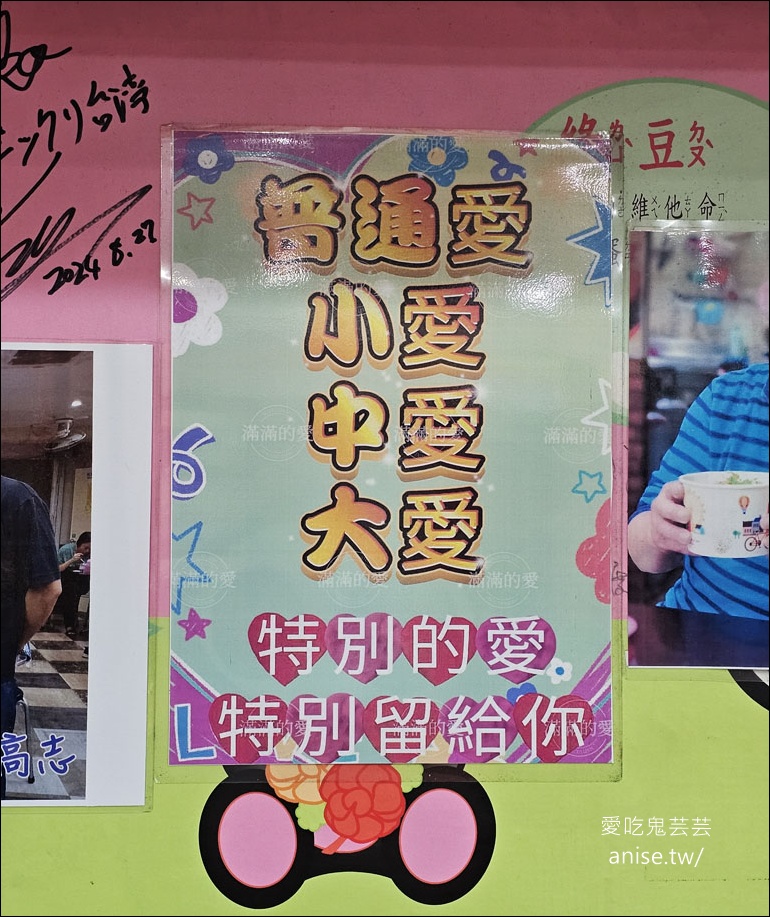 ックリ台湾
2024 8.27
綠豆ㄉㄡ
維ㄨㄟ他ㄊㄚ命ㄇㄧㄥ
普通愛
小愛
中愛
大愛
特別的愛
特別留給你
滿滿的愛
滿滿的愛
滿滿的愛
滿滿的愛
滿滿的愛
滿滿的愛
滿滿的愛
滿滿的愛
滿滿的愛
高志
愛吃鬼芸芸
anise.tw/